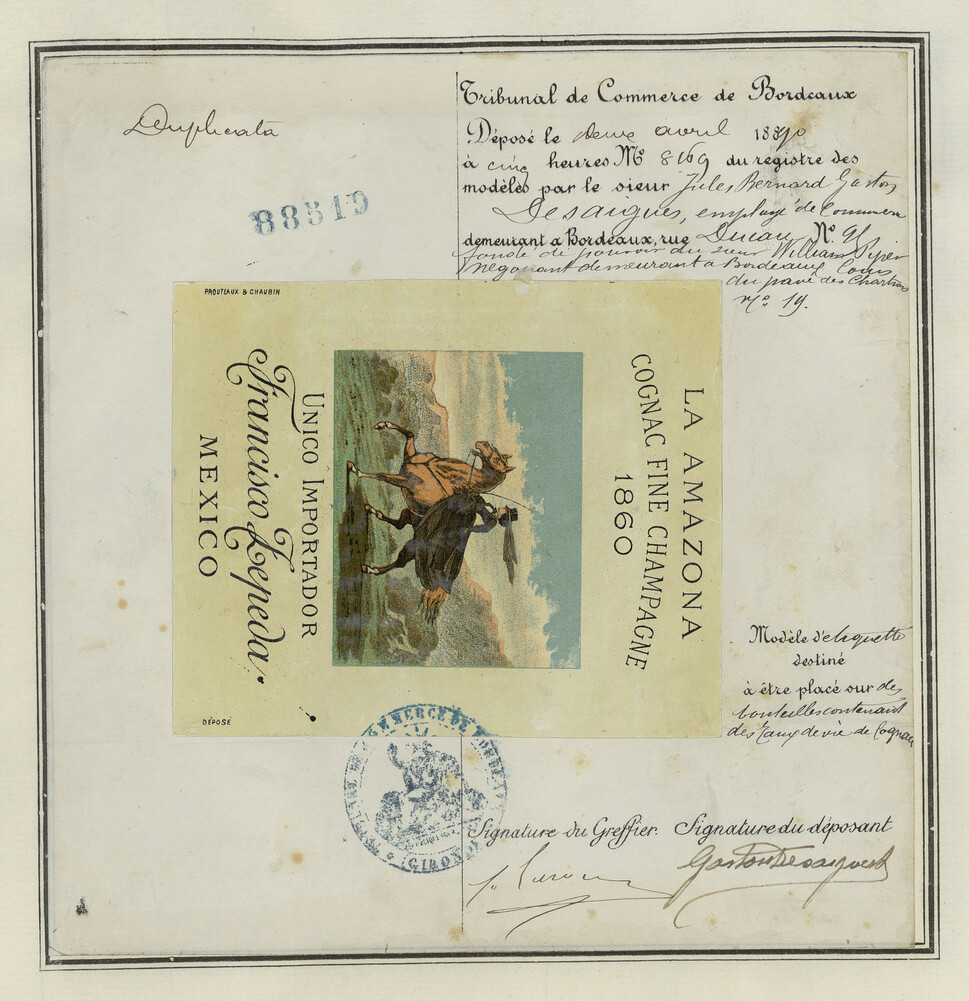 Duplicata
88519
Tribunal de Commerce de Bordeaux
Déposé le deux avril 1890
à cinq heures No 8169 du registre des
modèles par le sieur Jules Bernard Gaston
Desaigues, employé de Commerce
demeurant à Bordeaux, rue Ducau, No
fondé de pouvoir du sieur William Piper
négociant demeurant à Bordeaux Cours
du pavé des Chartrons
No 19.
PROUTEAUX & CHAUBIN
LA AMAZONA
COGNAC FINE CHAMPAGNE
1860
UNICO IMPORTADOR
Francisco Zepeda.
MEXICO
DÉPOSÉ
Modèle d'etiquette
destiné
à être placé sur des
bouteilles contenant
des Eaux de vie de Cognac
COMMERCE DE BORDEAUX
GIRONDE
Signature du Greffier. Signature du déposant